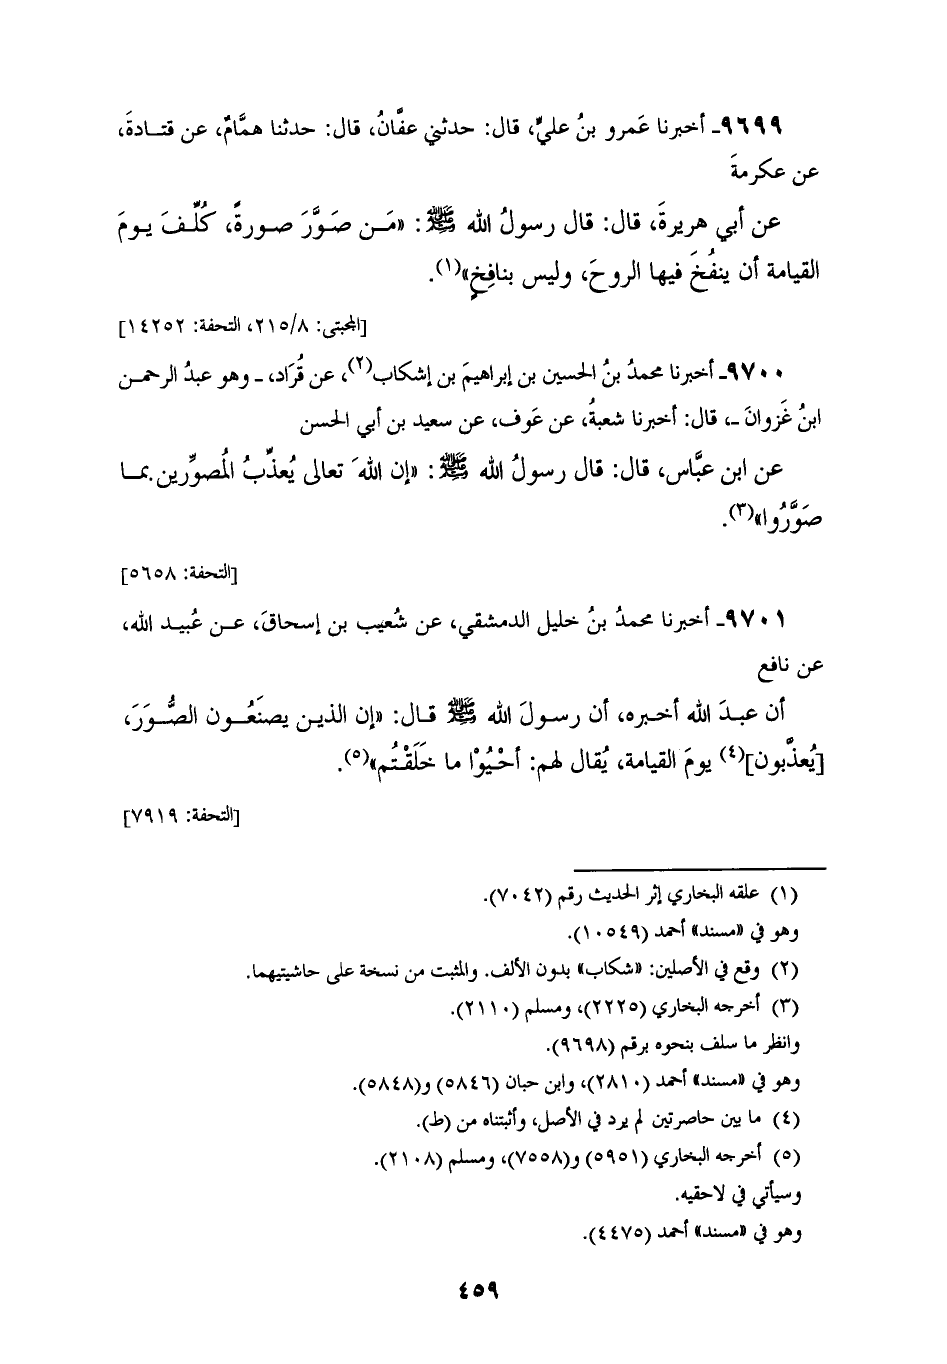 ٩٦٩٩ـ أخبرنا عَمرو بنُ عليٍّ، قال: حدثني عفَّانُ، قال: حدثنا همَّامٌ، عن قتـادةَ،
عن عكرمةَ
عن أبي هريرةَ، قال: قال رسولُ الله ﷺ: «مَـن صَـوَّرَ صـورةً، كُلِّـفَ يـومَ
القيامة أن ينفُخَ فيها الروحَ، وليس بنافِخٍ»(١).
[المجتبى: ٢١٥/٨، التحفة: ١٤٢٥٢]
٩٧٠٠ـ أخبرنا محمدُ بنُ الحسين بن إبراهيمَ بن إشكاب(٢)، عن قُرَاد، ـ وهو عبدُ الرحمـن
ابنُ غَزوانَ ـ، قال: أخبرنا شعبةُ، عن عَوف، عن سعيد بن أبي الحسن
عن ابن عبَّاس، قال: قال رسولُ الله ﷺ: «إن اللهَ تعالى يُعذِّبُ المُصوِّرين بمـا
صَوَّرُوا»(٣).
[التحفة: ٥٦٥٨]
٩٧٠١ـ أخبرنا محمدُ بنُ خليل الدمشقي، عن شُعيب بن إسحاقَ، عـن عُبيـد الله،
عن نافع
أن عبـدَ الله أخـبره، أن رسـولَ الله ﷺ قـال: «إن الذيـن يصنَعُـون الصُّـوَرَ،
[يُعذَّبون](٤) يومَ القيامة، يُقال لهم: أحْيُوْا ما خَلَقْتُم»(٥).
[التحفة: ٧٩١٩]
(١) علقه البخاري إثر الحديث رقم (٧٠٤٢).
وهو في «مسند» أحمد (١٠٥٤٩).
(٢) وقع في الأصلين: «شكاب» بدون الألف. والمثبت من نسخة على حاشيتيهما.
(٣) أخرجه البخاري (٢٢٢٥)، ومسلم (٢١١٠).
وانظر ما سلف بنحوه برقم (٩٦٩٨).
وهو في «مسند» أحمد (٢٨١٠)، وابن حبان (٥٨٤٦) و(٥٨٤٨).
(٤) ما بين حاصرتين لم يرد في الأصل، وأثبتناه من (ط).
(٥) أخرجه البخاري (٥٩٥١) و(٧٥٥٨)، ومسلم (٢١٠٨).
وسيأتي في لاحقيه.
وهو في «مسند» أحمد (٤٤٧٥).
٤٥٩